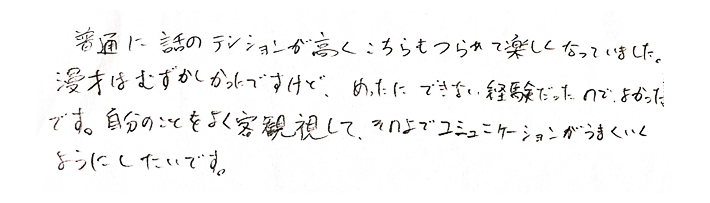 普通に話のテンションが高くこちらもつられて楽しくなっていました。
漫才はむずかしかったですけど、めったにできない経験だったので、よかった
です。自分のことをよく客観視して、その上でコミュニケーションがうまくいく
ようにしたいです。